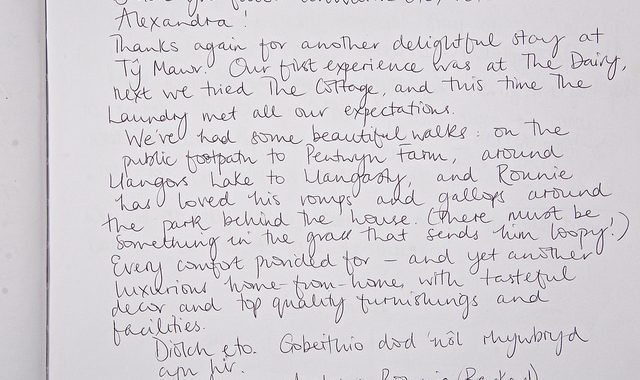 Alexandra!
Thanks again for another delightful stay at
Tŷ Mawr. Our first experience was at The Dairy,
next we tried The Cottage, and this time The
Laundry met all our expectations.
We've had some beautiful walks: on the
public footpath to Pentwyn Farm, around
Llangors Lake to Llangasty, and Ronnie
has loved his romps and gallops around
the park behind the house. (There must be
something in the grass that sends him loopy!)
Every comfort provided for – and yet another
luxurious home-from-home, with tasteful
decor and top quality furnishings and
facilities.
Diolch eto. Gobeithio dod 'nôl rhywbryd
cyn hir.